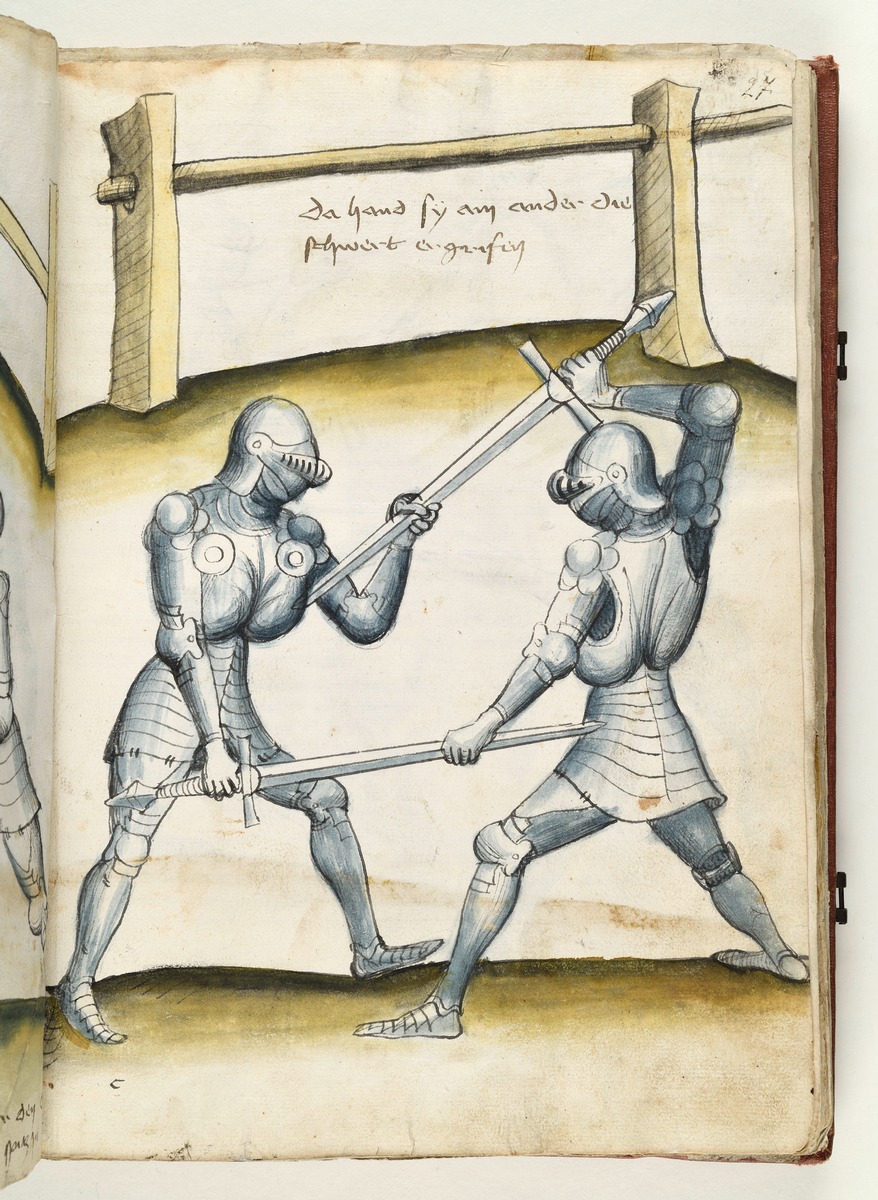 27
da hand sÿ ain ander die
schwert ergrifen
c
den